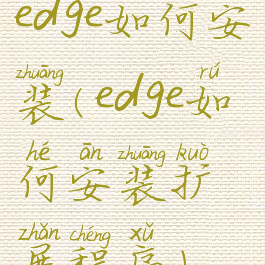 edge如何安
zhuāng rú
装(edge如
hé ān zhuāng kuò
何安装扩
zhǎn chéng xǔ
展程序)